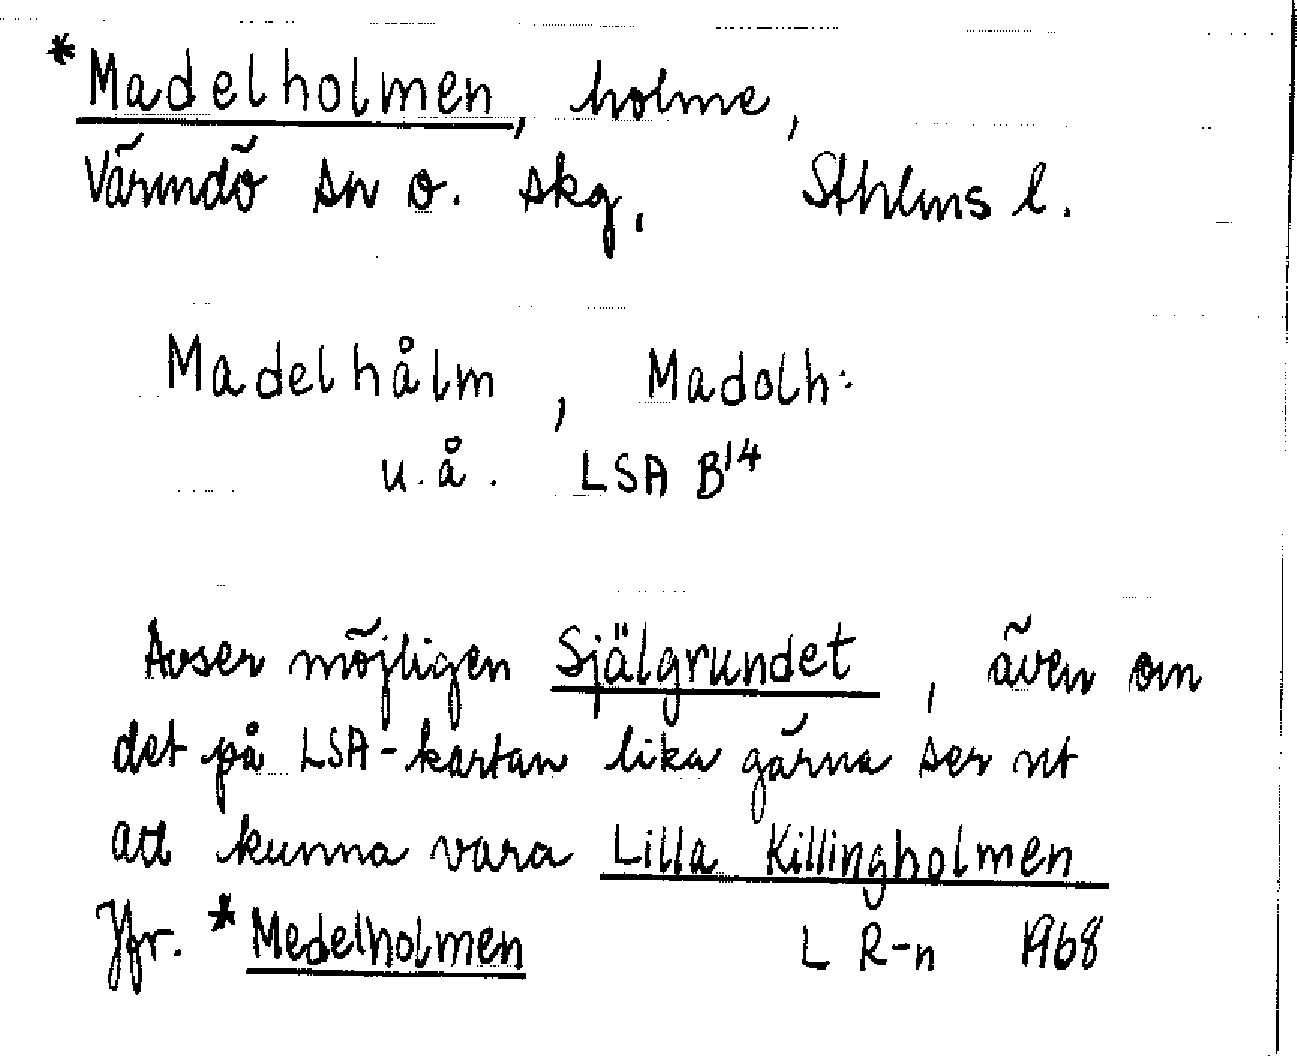 *Madelholmen, holme,
Värmdö sn o. skg, Sthlms l.
Madelhålm, Madolh:
u.å. LSA B14
Avser möjligen Själgrundet, även om
det på LSA-kartan lika gärna ser ut
att kunna vara Lilla Killingholmen
Jfr. *Medelholmen L R-n 1968